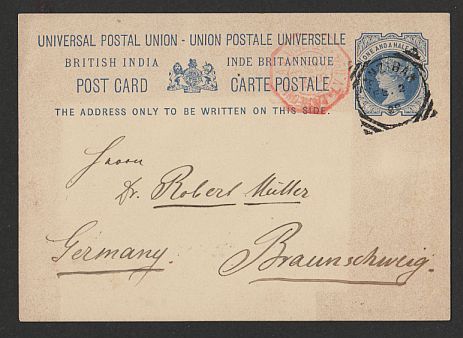 UNIVERSAL POSTAL UNION - UNION POSTALE UNIVERSELLE
BRITISH INDIA INDE BRITANNIQUE
POST CARD CARTE POSTALE
THE ADDRESS ONLY TO BE WRITTEN ON THIS SIDE.
ONE AND A HALF
ZANZIBAR
Herrn
Dr. Robert Müller
Germany. Braunschweig.